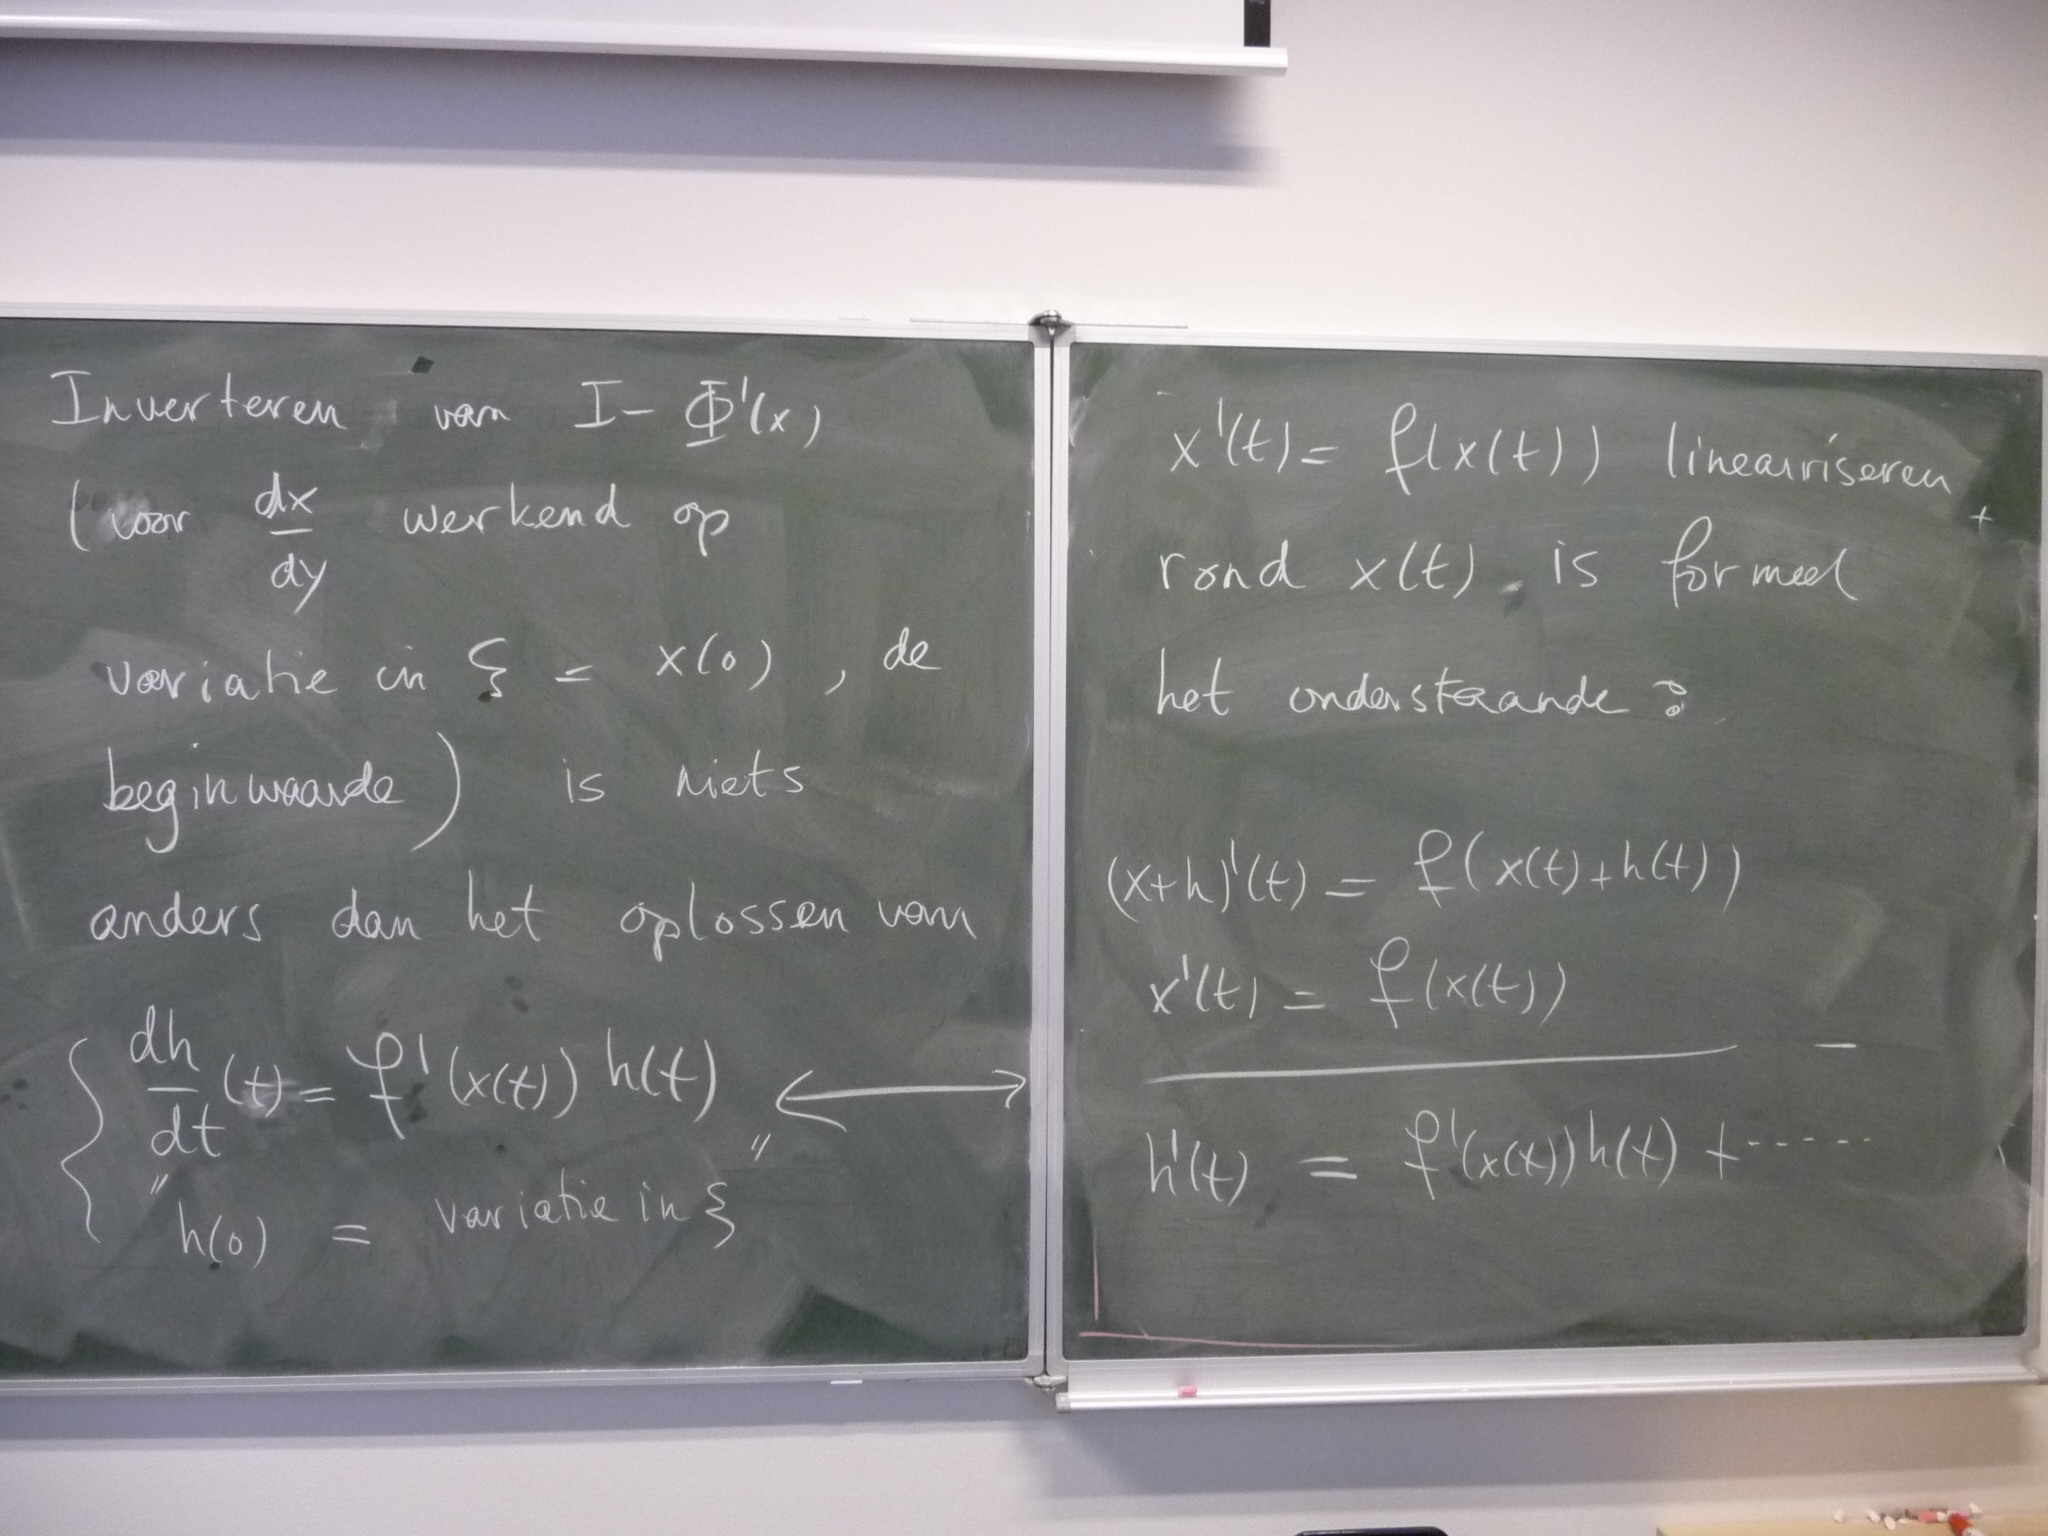 Inverteren van I - Φ'(x)
(voor dx/dy werkend op
variatie in ξ = x(0), de
beginwaarde) is niets
anders dan het oplossen van
{ dh/dt (t) = f'(x(t)) h(t) ⟷
" h(0) = variatie in ξ "
x'(t) = f(x(t)) lineariseren
rond x(t) is formeel
het onderstaande:
(x+h)'(t) = f(x(t)+h(t))
x'(t) = f(x(t))
—
h'(t) = f'(x(t)) h(t) + ------